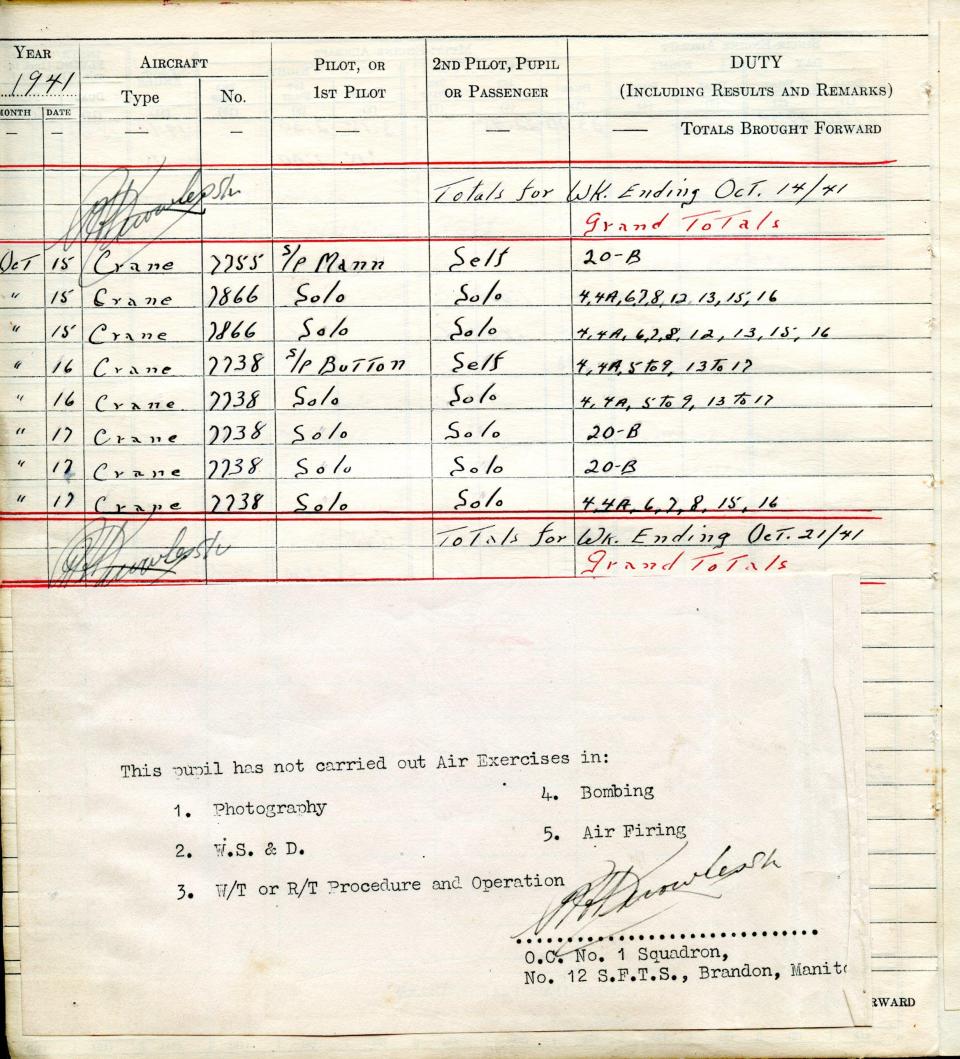 YEAR AIRCRAFT PILOT, OR 2ND PILOT, PUPIL DUTY
1941 Type No. 1ST PILOT OR PASSENGER (INCLUDING RESULTS AND REMARKS)
MONTH DATE
— — — — — — — TOTALS BROUGHT FORWARD
Totals for Wk. Ending Oct. 14/41
Grand Totals
Oct 15 Crane 7755 S/P Mann Self 20-B
" 15 Crane 7866 Solo Solo 4,4A,6,7,8, 12 13, 15, 16
" 15 Crane 7866 Solo Solo 4,4A, 6,7,8, 12, 13, 15, 16
" 16 Crane 7738 S/P Button Self 4,4A,5 to 9, 13 to 17
" 16 Crane 7738 Solo Solo 4,4A, 5 to 9, 13 to 17
" 17 Crane 7738 Solo Solo 20-B
" 17 Crane 7738 Solo Solo 20-B
" 17 Crane 7738 Solo Solo 4,4A, 6, 7, 8, 15, 16
Totals for Wk. Ending Oct. 21/41
Grand Totals
This pupil has not carried out Air Exercises in:
1. Photography
2. W.S. & D.
3. W/T or R/T Procedure and Operation
4. Bombing
5. Air Firing
O.C. No. 1 Squadron,
No. 12 S.F.T.S., Brandon, Manito
RWARD